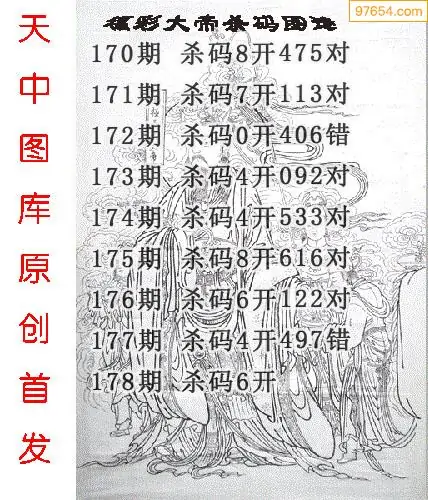 97654.com
福彩大帝杀码图迷
天中图库原创首发
170期 杀码8开475对
171期 杀码7开113对
172期 杀码0开406错
173期 杀码4开092对
174期 杀码4开533对
175期 杀码8开616对
176期 杀码6开122对
177期 杀码4开497错
178期 杀码6开